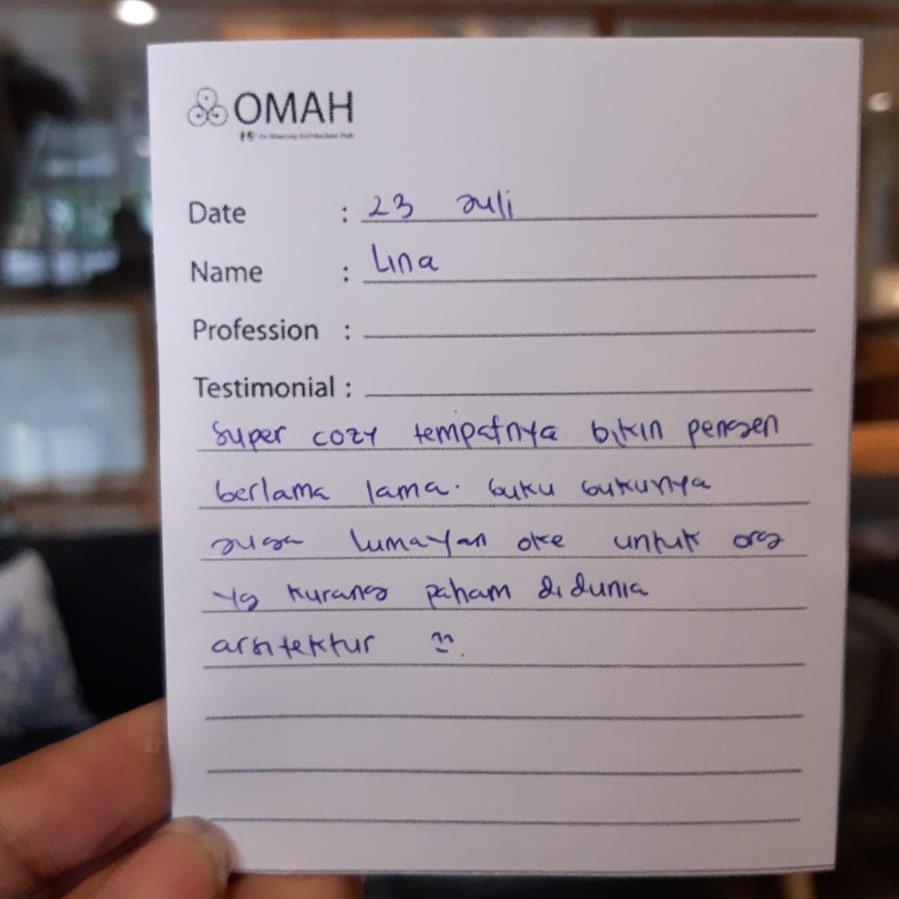 OMAH
Date : 23 Juli
Name : Lina
Profession :
Testimonial :
Super cozy tempatnya bikin pengen
berlama lama. buku bukunya
juga lumayan oke untuk org
yg kurang paham di dunia
arsitektur